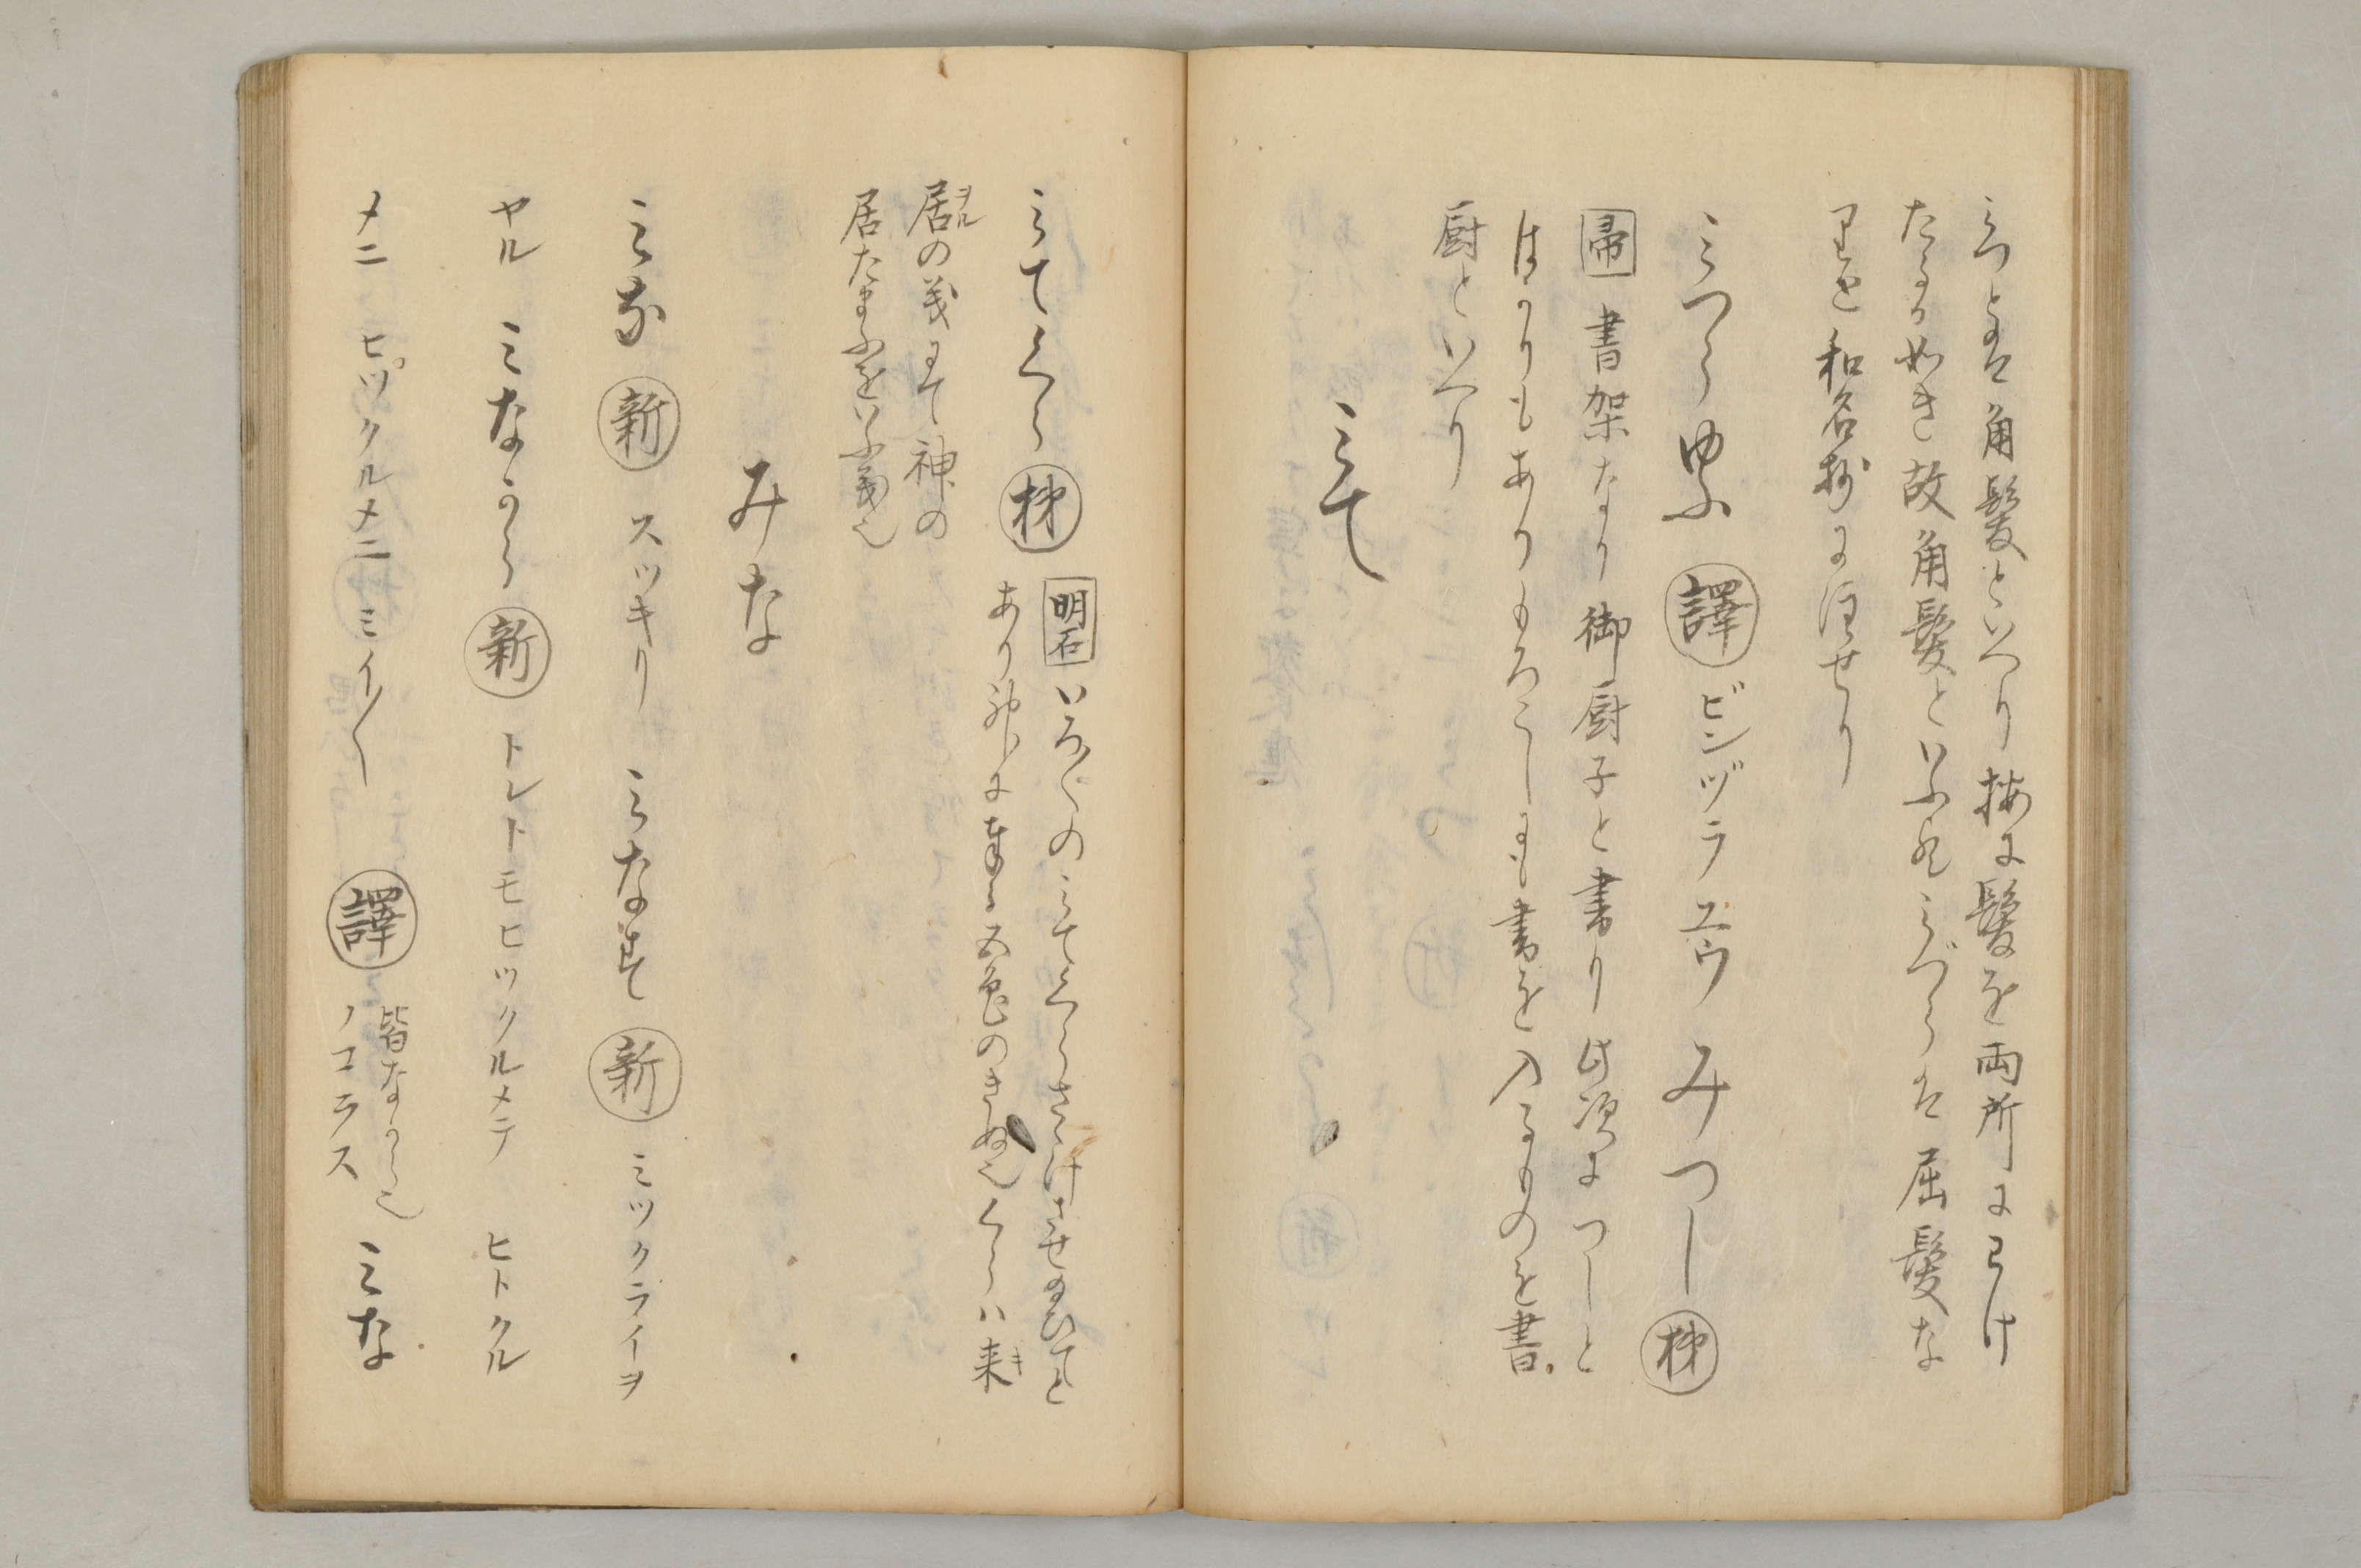 みつとは角髪といへり按に髪を両所にわけ
たるか如き故角髪といふ然みづらは屈髪な
りと和名抄に注せり
みつらゆふ 譯 ビンヅラユウ みつし 梯
帚 書架なり御厨子と書り此項につしと
はかりもありもろこしにも書を入るものを書
厨といへり
みて
みてくら 梯 明石 いろ〳〵のみてくらさゝけさせ給ひてと
あり神に奉る五色のきぬ也くらハ来キ
居ヲルの義にて神の
居たまふをいふ義也
みな
みな 新 スツキリ みなにす 新 ミツクライヲ
ヤル みなから 新 トレトモヒツクルメテ ヒトクル
メニ ピツクルメニ ミイ〳〵 譯 皆なから也
ノコラス みな